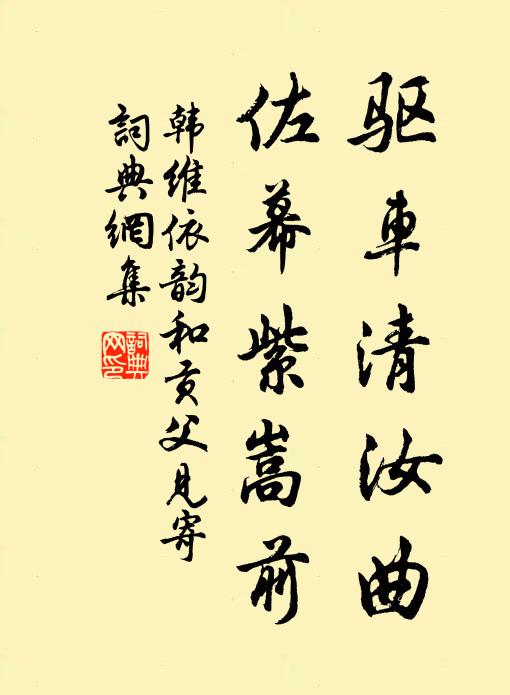 驱車清汝曲
佐幕紫嵩前
韩维依韵和贡父见寄
詞典網集
詞典网印